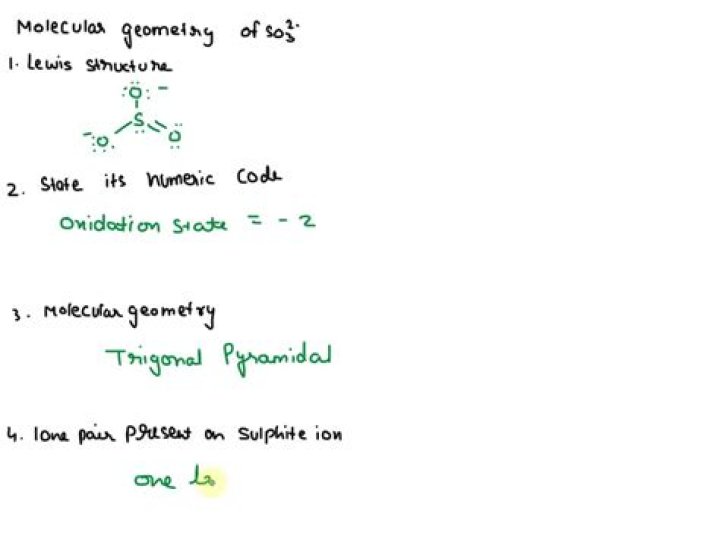 Molecular geometry of SO₃²⁻
1. Lewis structure
:Ö: -
S
-:O. O
2. State its numeric code
Oxidation state = - 2
3. Molecular geometry
Trigonal Pyramidal
4. lone pair present on sulphite ion
one